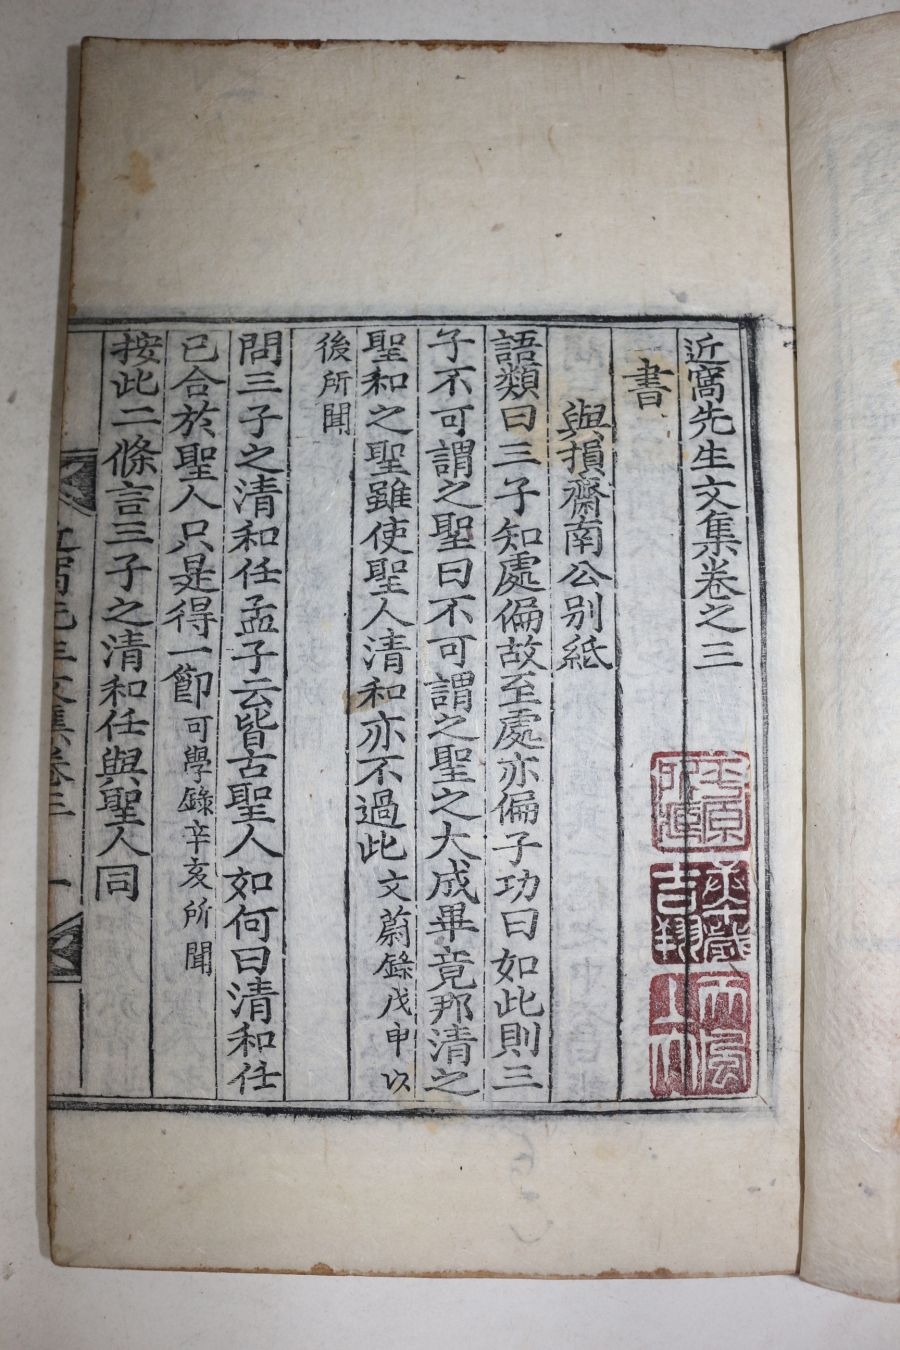 近窩先生文集卷之三
書
與損齋南公别紙
語類曰三子知處偏故至處亦偏子功曰如此則三
子不可謂之聖曰不可謂之聖之大成畢竟那清之
聖和之聖雖使聖人清和亦不過此文蔚錄戊申以
後所聞
問三子之清和任孟子云皆古聖人如何曰清和任
已合於聖人只是得一節可學錄辛亥所聞
按此二條言三子之清和任與聖人同